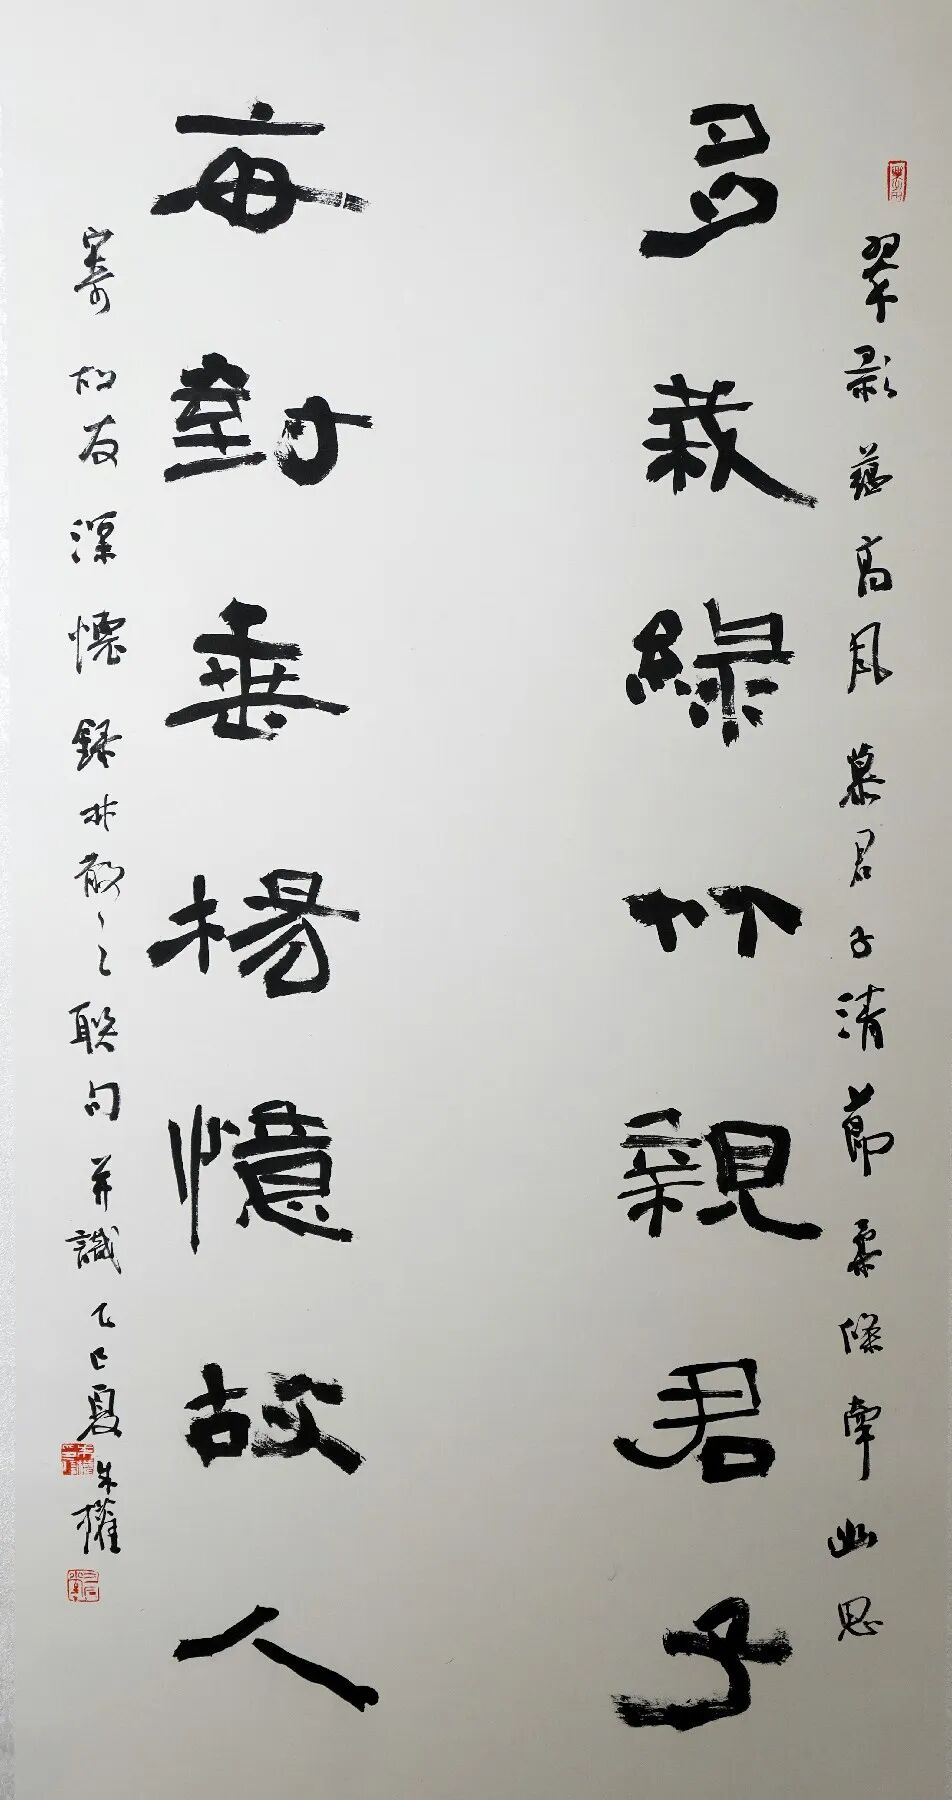 翠影蘊高風慕君子清節柔條牽幽思
多栽綠竹親君子
每對垂楊憶故人
寄故友深懷錄林散之聯句并識乙巳夏朱權